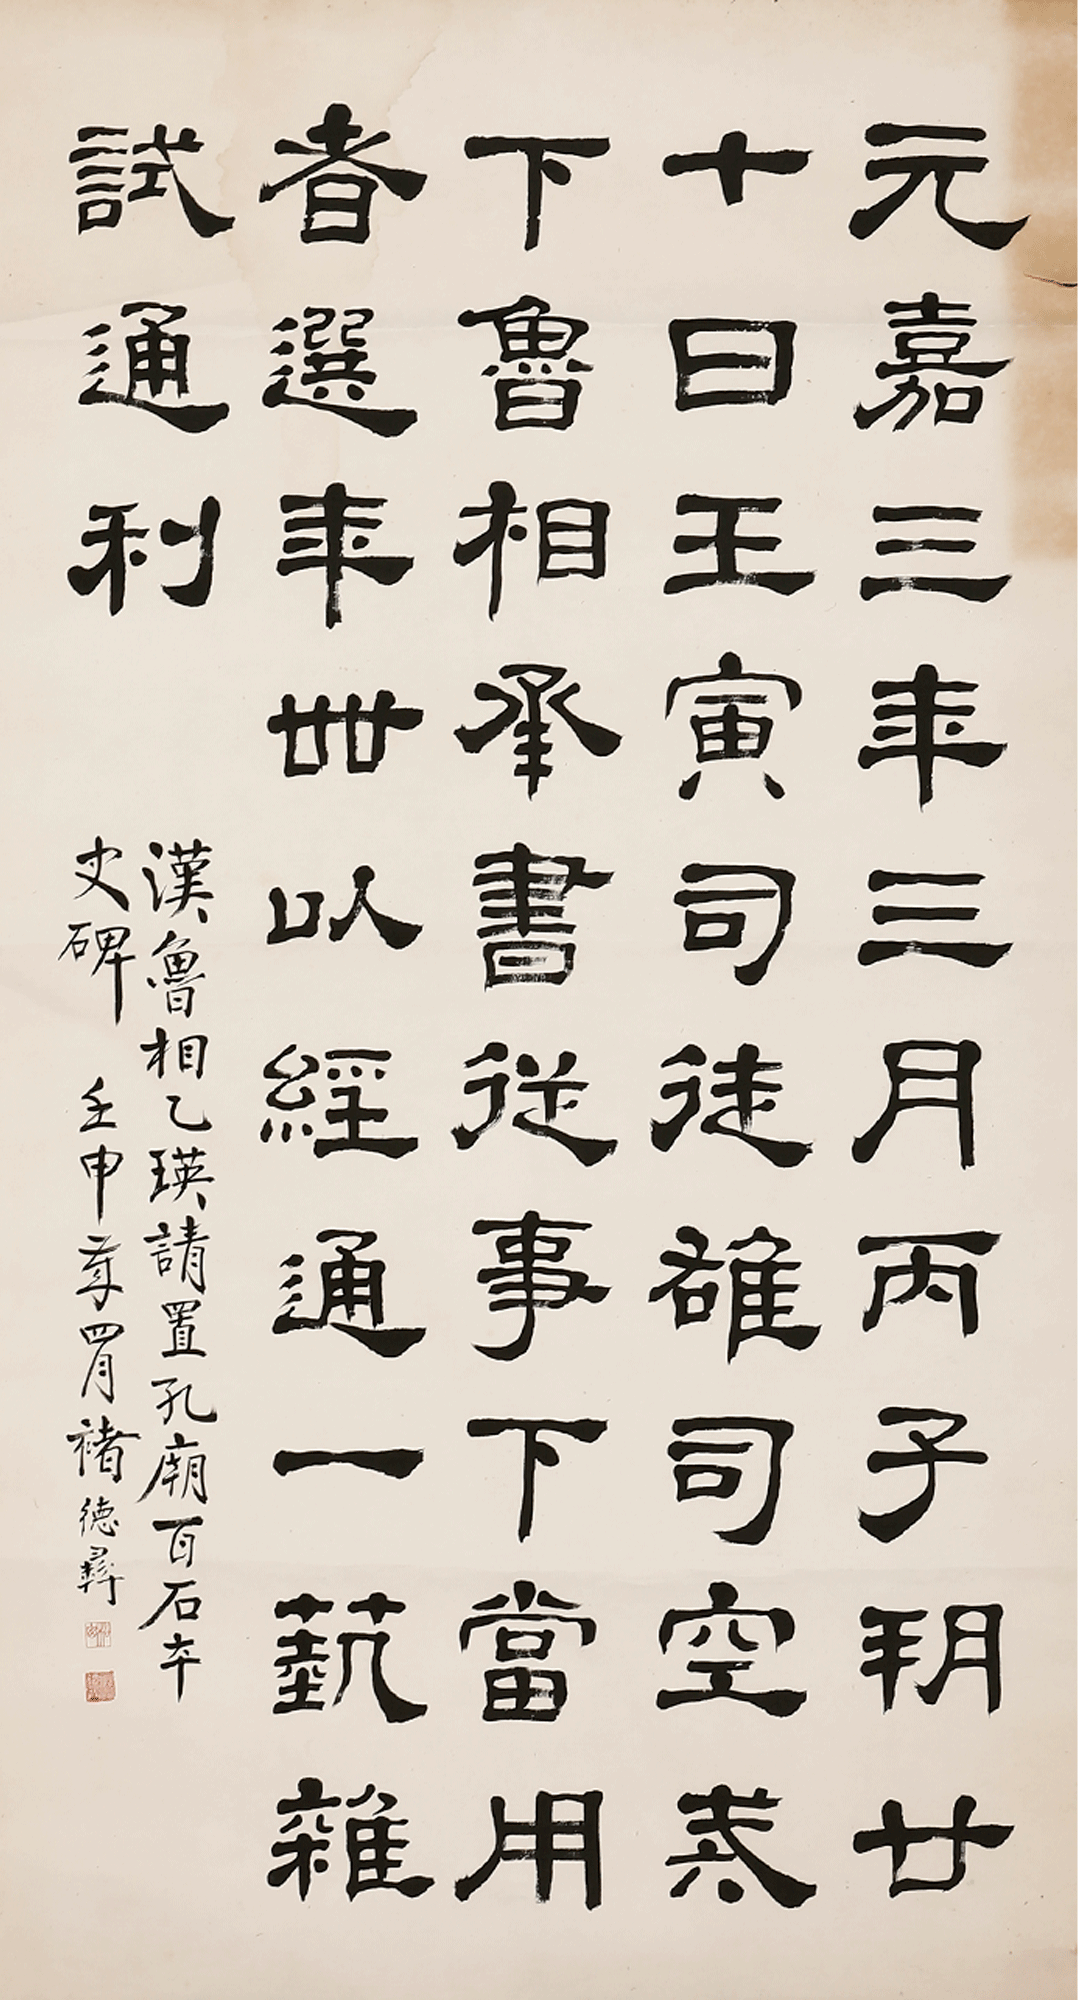 元嘉三年三月丙子朔廿
十日壬寅司徒雄司空戒
下魯相承書從事下當用
者選年卌以經通一藝雜
試通利
漢魯相乙瑛請置孔廟百石卒
史碑 壬申年四月褚德彝